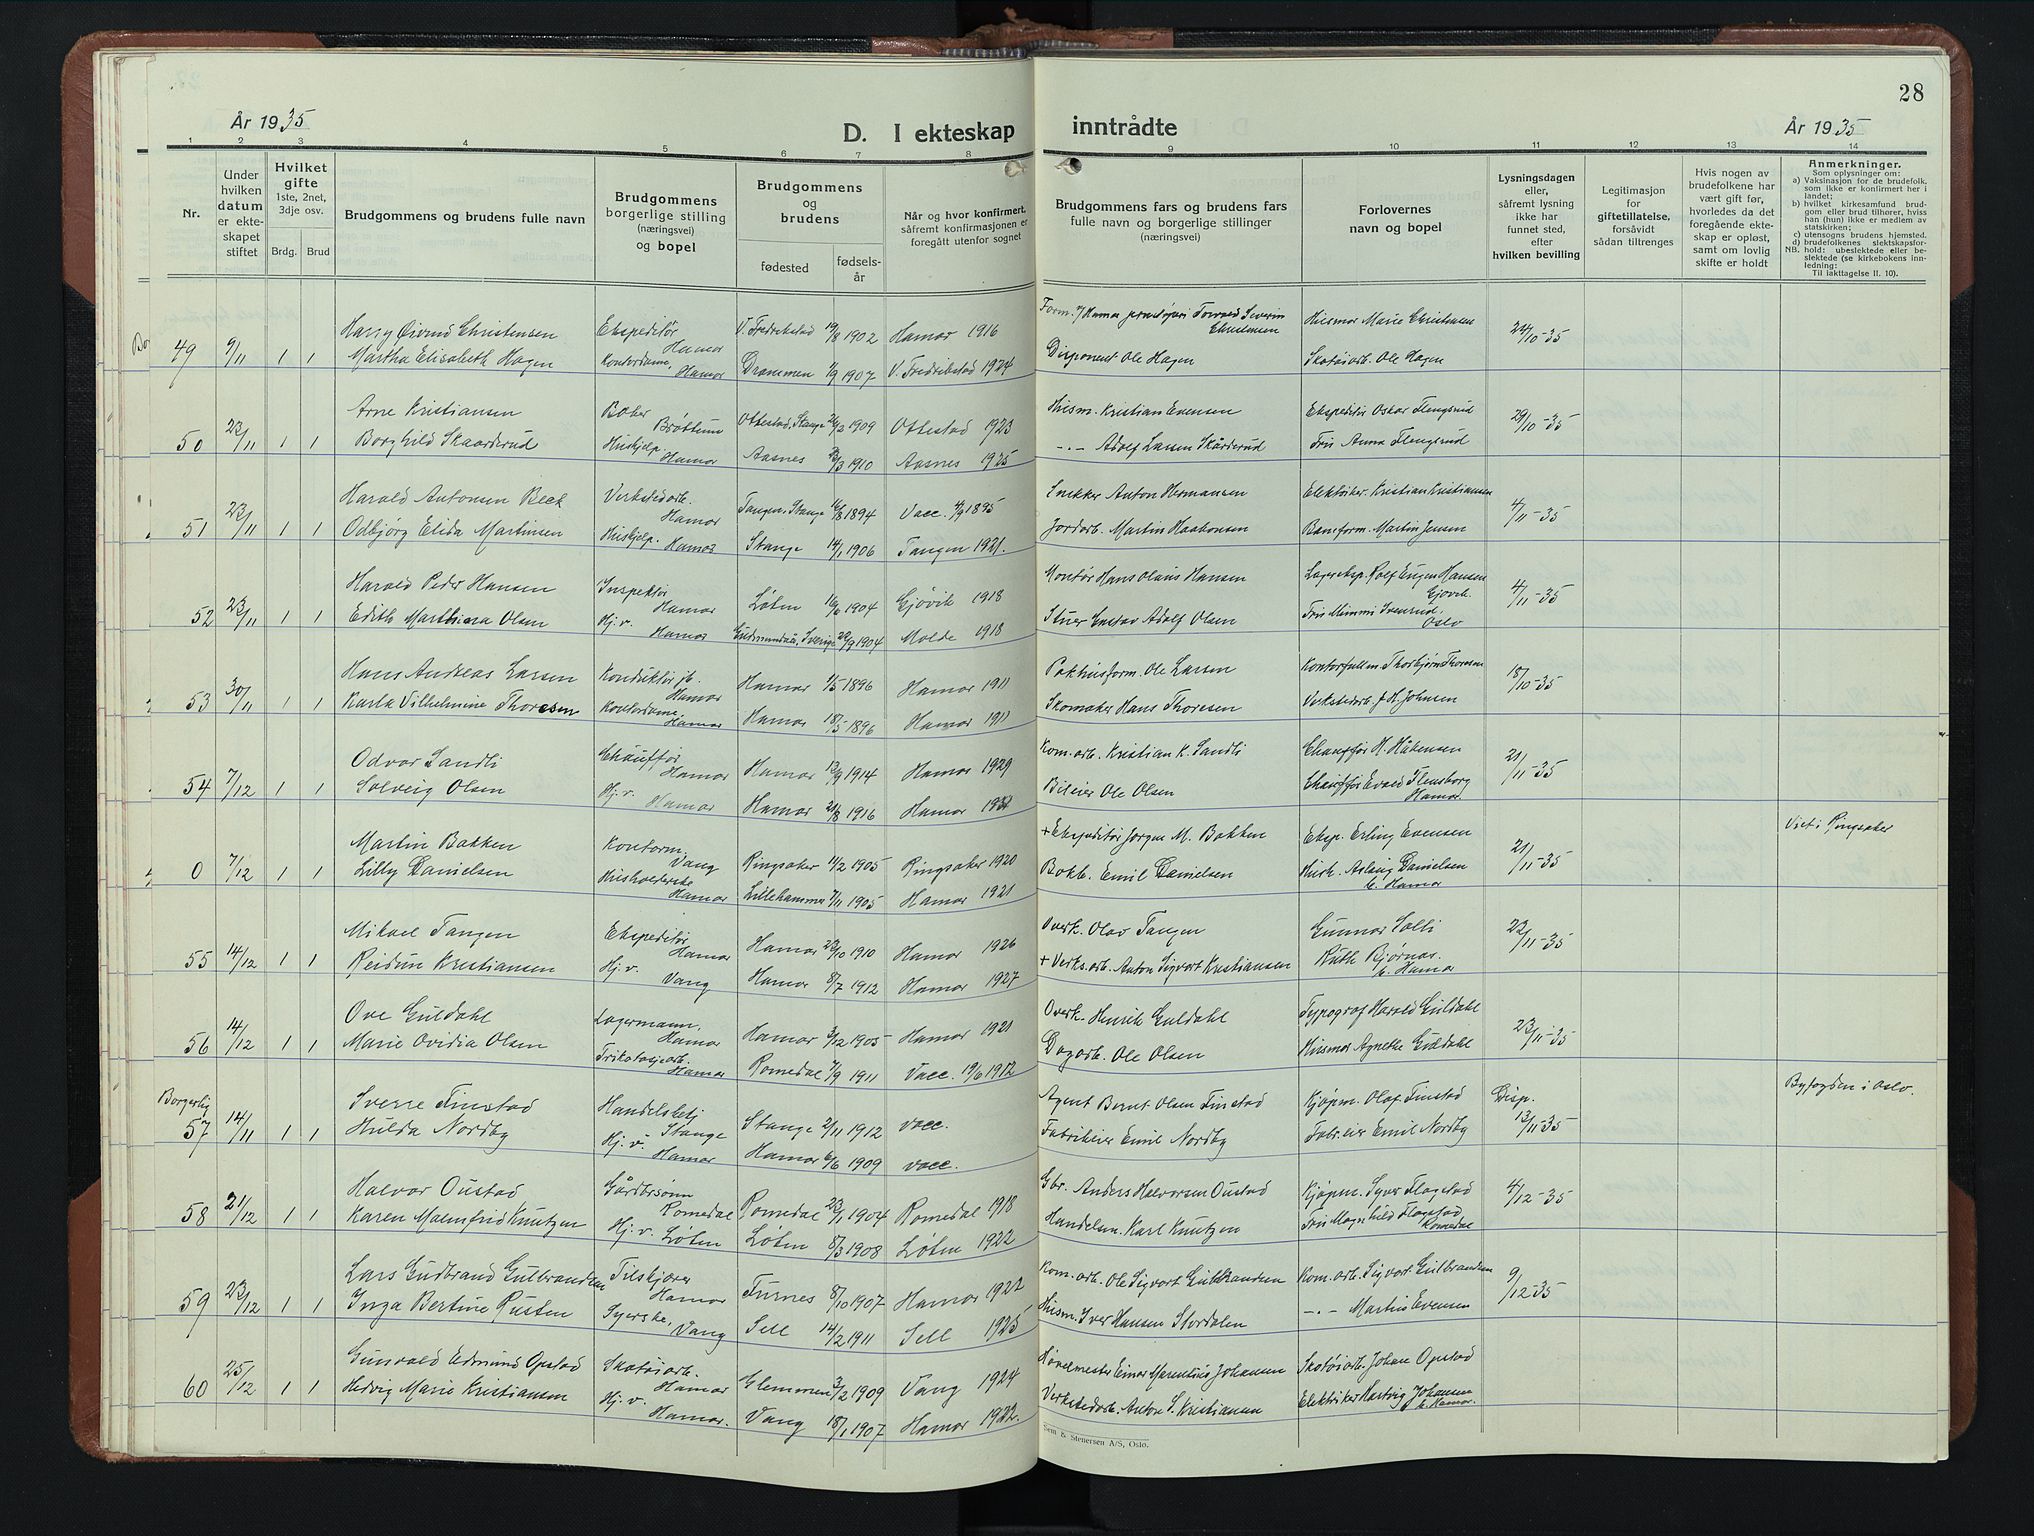 28
År 1935
D. I ekteskap inntrådte
År 1935
1 2 3 4 5 6 7 8 9 10 11 12 13 14
Nr.
Under hvilken datum er ekteskapet stiftet
Hvilket gifte 1ste, 2net, 3dje osv.
Brdg. Brud
Brudgommens og brudens fulle navn
Brudgommens borgerlige stilling (næringsvei) og bopel
Brudgommens og brudens
fødested
fødselsår
Når og hvor konfirmert, såfremt konfirmasjonen er foregått utenfor sognet
Brudgommens fars og brudens fars fulle navn og borgerlige stillinger (næringsvei)
Forlovernes navn og bopel
Lysningsdagen eller, såfremt lysning ikke har funnet sted, efter hvilken bevilling
Legitimasjon for giftetillatelse, forsåvidt sådan tiltrenges
Hvis nogen av brudefolkene har vært gift før, hvorledes da det foregående ekteskap er opløst, samt om lovlig skifte er holdt
Anmerkninger.
Som oplysninger om:
a) Vaksinasjon for de brudefolk, som ikke er konfirmert her i landet;
b) hvilket kirkesamfund brudgom eller brud tilhører, hviss han (hun) ikke er medlem av statskirken;
c) utensogns brudens hjemsted.
d) brudefolkenes slektskapsforhold: ubeslektede eller beslektede (se kirkebokens innledning:
NB. Til iakttagelse II. 10).
49 9/11 1 1 Harry Øivind Christensen Ekspeditør Hamar V. Fredrikstad 19/8 1902 Hamar 1916 Severin Christensen Husmor Marie Christensen 24/10-35
Martha Elisabeth Hagen Kontordame, Hamar Drammen 1/9 1907 V. Fredrikstad 1924 Disponent Ole Hagen Skotøiarb. Ole Hagen
50 23/11 1 1 Arne Kristiansen Baker Brøttum Ottestad, Stange 26/2 1909 Ottestad 1923 Husm. Kristian Evensen Ekspeditør Oskar Flengsrud 29/10-35
Borghild Skaarderud Hushjelp Hamar Aasnes 1910 Aasnes 1925 -„- Adolf Larsen Skårderud Fru Anna Flengsrud
51 23/11 1 1 Harald Antonsen Beck Verkstedarb. Hamar Tangen, Stange 16/8 1894 Vacc. 4/9 1895 Snekker Anton Hermansen Elektriker. Kristian Kristiansen 4/11-35
Odbjørg Elida Martinsen Hushjelp. Hamar Stange 14/1 1906 Tangen 1921. Jordarb. Martin Haakonsen Baneform. Martin Jensen
52 23/11 1 1 Harald Peder Hansen Inspektør Hamar Løten 16/6 1904 Gjøvik 1918 Montør Hans Olaus Hansen Lagereksp. Rolf Eugen Hansen Gjøvik. 4/11-35
Edith Marthiera Olsen Hj. v. Hamar Sverige 22/9 1904 Molde 1918 Stuer Gustav Adolf Olsen Fru Mimmi Svensrud, Oslo
53 30/11 1 1 Hans Andreas Larsen Konduktør jb. Hamar Hamar 1/5 1896 Hamar 1911 Pakhusform. Ole Larsen Kontorfullm. Thorbjørn Thoresen 18/10-35
Karla Vilhelmine Thoresen Kontordame Hamar Hamar 18/5 1896 Hamar 1911 Skomaker Hans Thoresen Verkstedarb. J. H. Johnsen
54 7/12 1 1 Odvar Sandli Chauffør Hamar Hamar 13/9 1914 Hamar 1929 Kom. arb. Kristian K. Sandli Chauffør H. Håkensen 21/11-35
Solveig Olsen Hj. v. Hamar Hamar 21/8 1916 Hamar 1931 Bileier Ole Olsen Chauffør Evald Flensborg Hamar.
0 7/12 1 1 Martin Bakken Kontorm. Vang Ringsaker 11/2 1905 Ringsaker 1920 + Ekspeditør Jørgen M. Bakken Eksp. Erling Evensen 21/11-35 Viet i Ringsaker
Lilly Danielsen Husholderske Hamar Lillehammer 7/11 1905 Hamar 1921 Bokb. Emil Danielsen Hush. Aslaug Danielsen b. Hamar
55 14/12 1 1 Mikael Tangen Ekspeditør Hamar Hamar 23/10 1910 Hamar 1926 Overk. Olav Tangen Gunnar Solli 22/11-35
Reidun Kristiansen Hj. v. Vang Hamar 8/7 1912 Hamar 1927 + Verks.arb. Anton Sigvart Kristiansen Ruth Bjørnar. b. Hamar
56 14/12 1 1 Ove Guldahl Lagermann, Hamar Hamar 3/12 1905 Hamar 1921 Overk. Henrik Guldahl Typograf Harald Guldahl 23/11-35
Marie Ovidia Olsen Trikotasjearb. Hamar Romedal 7/9 1911 Vacc. 19/6 1912 Dagarb. Ole Olsen Husmor Agnethe Guldahl
Borgerlig
57 14/11 1 1 Sverre Finstad Handelsbetj Stange Stange 2/11 1912 vacc. Agent Bernt Olsen Finstad Kjøpm. Olaf Finstad Disp. 13/11-35 Byfogden i Oslo.
Hulda Nordby Hj. v. Hamar Hamar 6/6 1909 vacc. Fabrikeier Emil Nordby Fabr.eier Emil Nordby
58 21/12 1 1 Halvor Oustad Gårdbrsønn Romedal Romedal 23/1 1904 Romedal 1918 Gbr. Anders Halvorsen Oustad Kjøpm. Syver Flagstad 4/12-35
Karen Malmfrid Knutzen Hj. v. Løten Løten 8/3 1908 Løten 1922 Handelsm. Karl Knutzen Fru Magnhild Flagstad Romedal
59 23/12 1 1 Lars Gudbrand Gulbrandsen Tilskjærer Hamar Furnes 8/10 1907 Hamar 1922 Kom. arb. Ole Sigvart Gulbrandsen Kom. arb. Sigvart Gulbrandsen 9/12-35
Inga Bertine Rusten Syerske, Vang Sell 14/2 1911 Sell 1925 Husm. Iver Hansen Stordalen -„- Martin Evensen
60 25/12 1 1 Gunvald Edmund Opstad Skotøiarb. Hamar Glemmen 3/2 1909 Vang 1924 Høvelmester Einar Marentius Johansen Skotøiarb. Johan Opstad
Hedvig Marie Kristiansen Hj. v. Hamar. Vang 18/1 1907 Hamar 1922. Verkstedarb. Anton S. Kristiansen Elektriker Hartvig Johansen b. Hamar.
Sem & Stenersen A/S, Oslo.